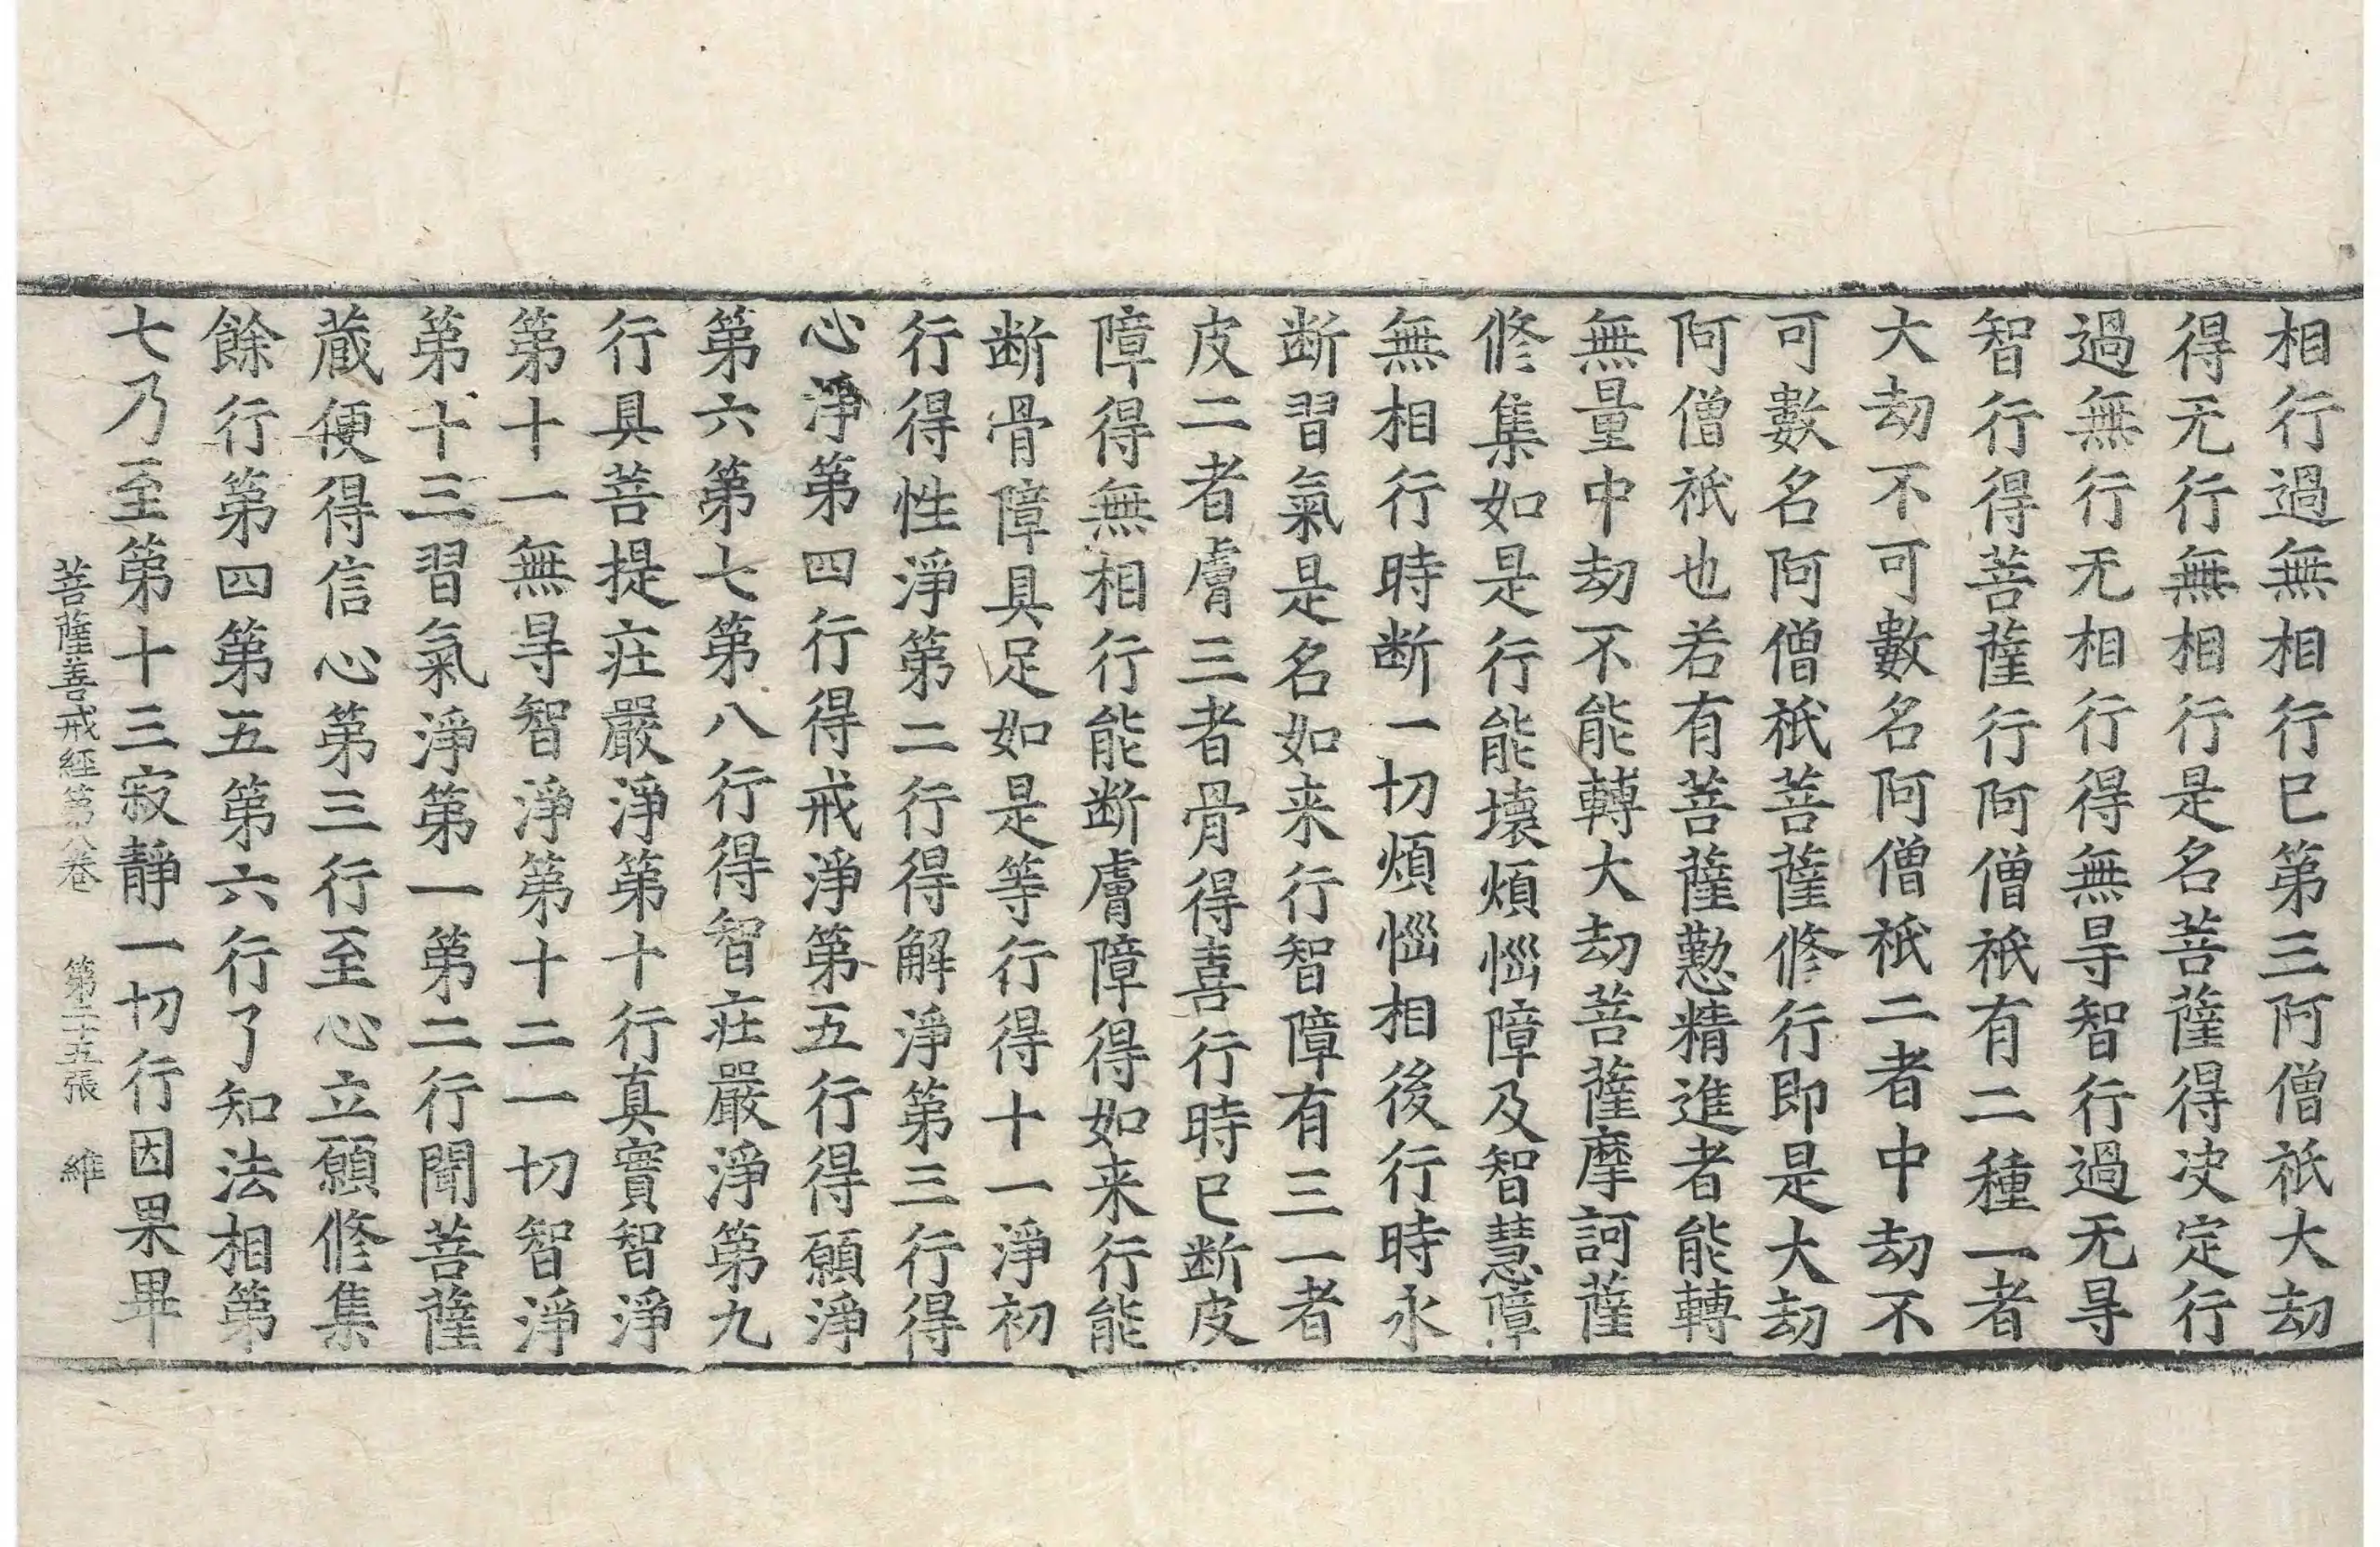 相行過無相行已第三阿僧祇大劫
得无行無相行是名菩薩得决定行
過無行无相行得無㝵智行過无㝵
智行得菩薩行阿僧祇有二種一者
大劫不可數名阿僧祇二者中劫不
可數名阿僧祇菩薩修行即是大劫
阿僧祇也若有菩薩懃精進者能轉
無量中劫不能轉大劫菩薩摩訶薩
修集如是行能壞煩惱障及智慧障
無相行時断一切煩惱相後行時永
断習氣是名如来行智障有三一者
皮二者膚三者骨得喜行時已断皮
障得無相行能断膚障得如来行能
断骨障具足如是等行得十一淨初
行得性淨第二行得解淨第三行得
心淨第四行得戒淨第五行得願淨
第六第七第八行得智疘嚴淨第九
行具菩提疘嚴淨第十行真實智淨
第十一無㝵智淨第十二一切智淨
第十三習氣淨第一第二行聞菩薩
蔵便得信心第三行至心立願修集
餘行第四第五第六行了知法相第
七乃至第十三寂靜一切行因果畢
菩薩善戒經第八卷　第二十五張　維